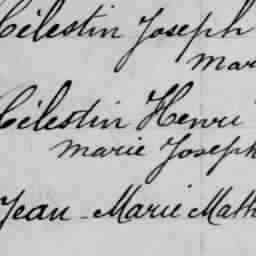 Célestin Joseph
Mar
Célestin Henri
Marie Joseph
Jean-Marie Math